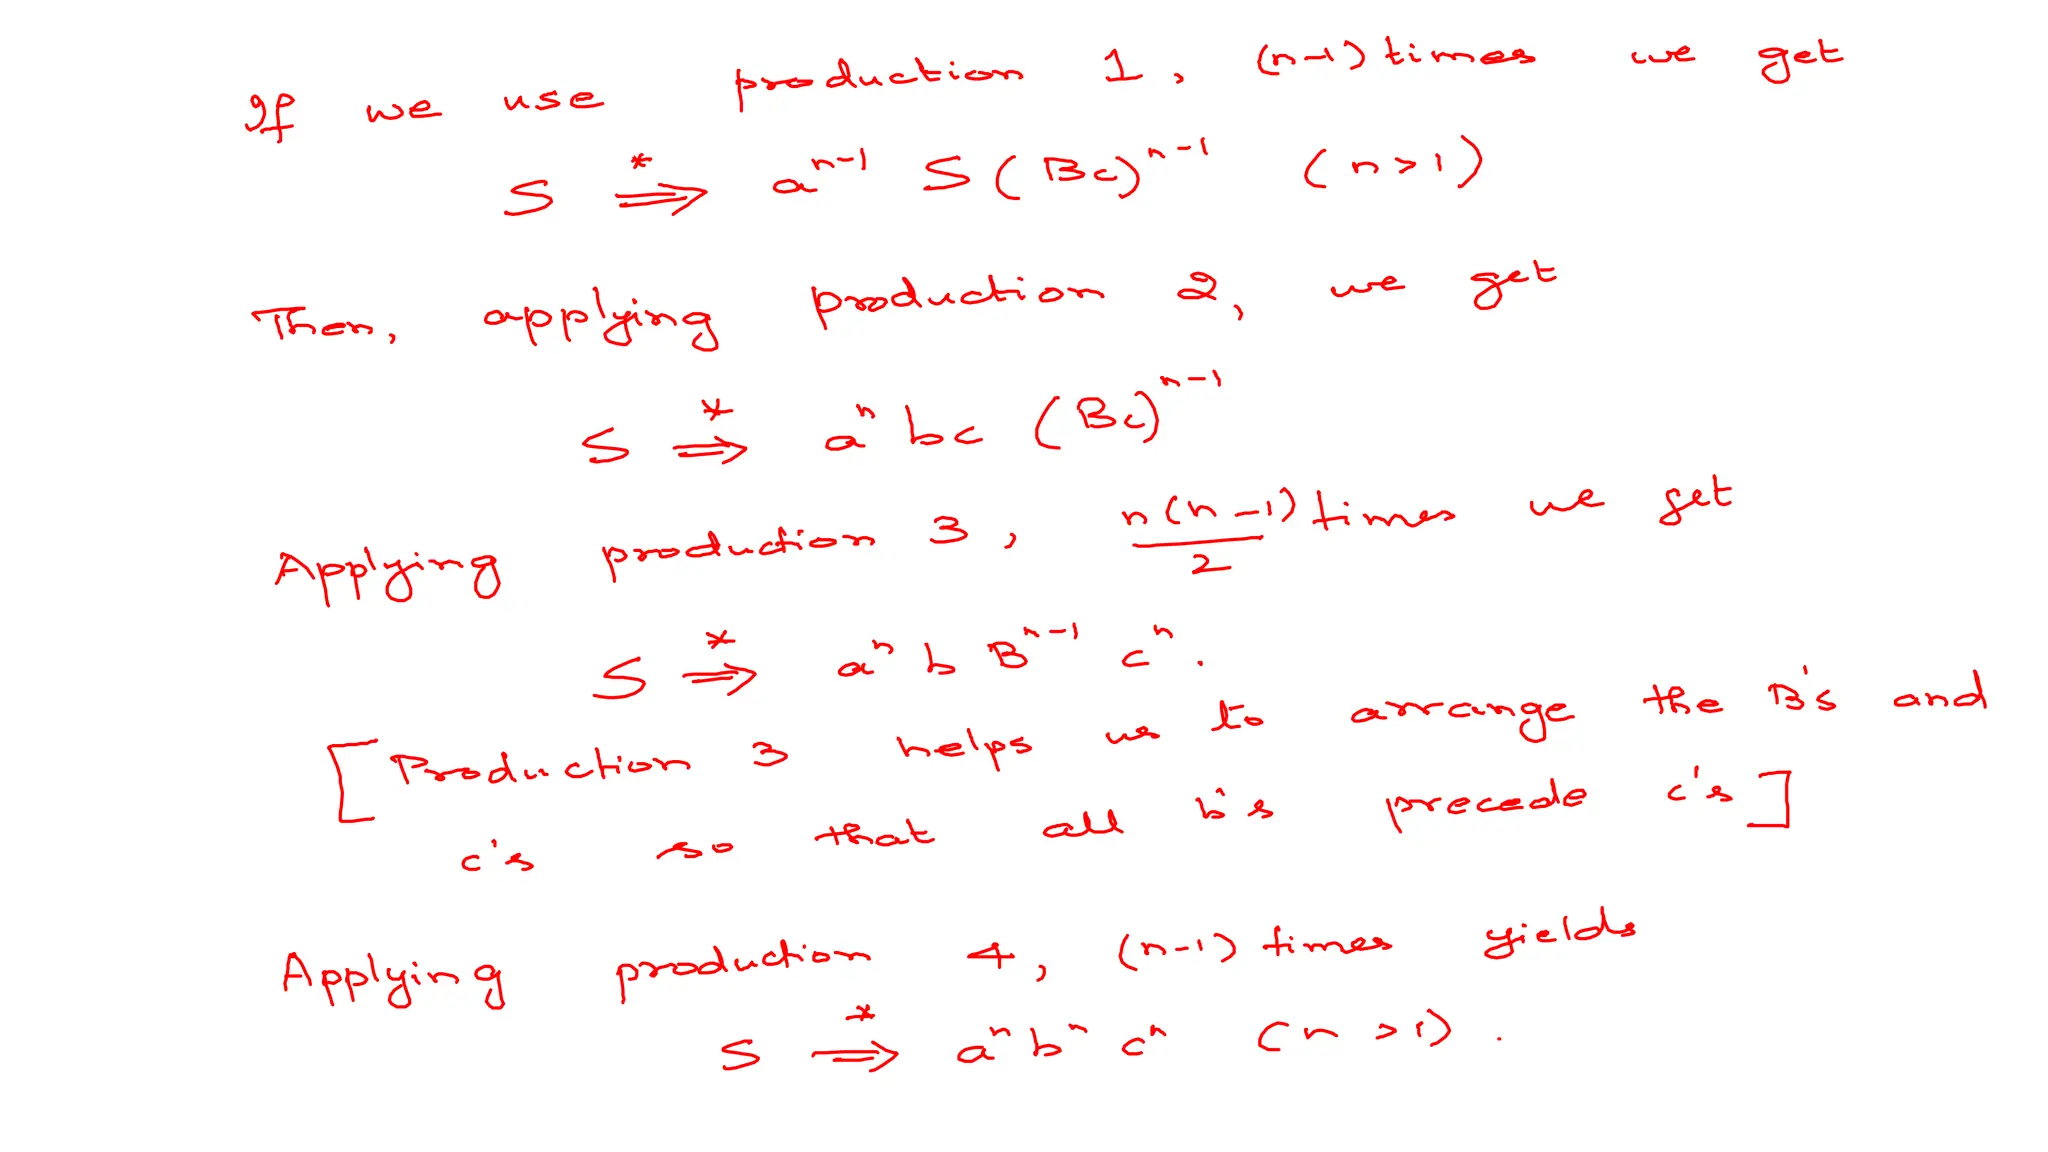 If we use production 1, (n-1) times we get
S ⇒* a^{n-1} S (Bc)^{n-1} (n>1)
Then, applying production 2, we get
S ⇒* a^n bc (Bc)^{n-1}
Applying production 3, n(n-1)/2 times we get
S ⇒* a^n b B^{n-1} c^n.
[Production 3 helps us to arrange the B's and
c's so that all b's precede c's]
Applying production 4, (n-1) times yields
S ⇒* a^n b^n c^n (n>1).